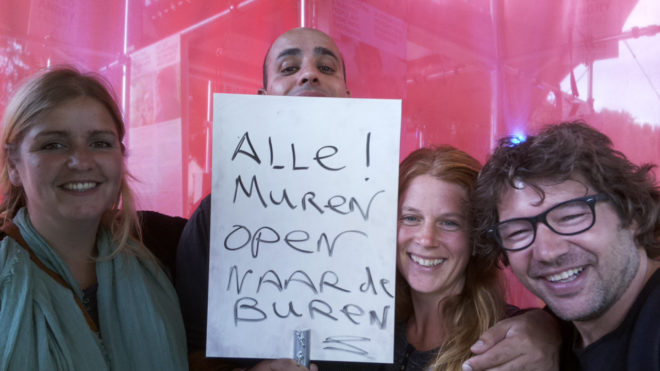 ALLE!
MUREN
OPEN
NAAR de
BUREN